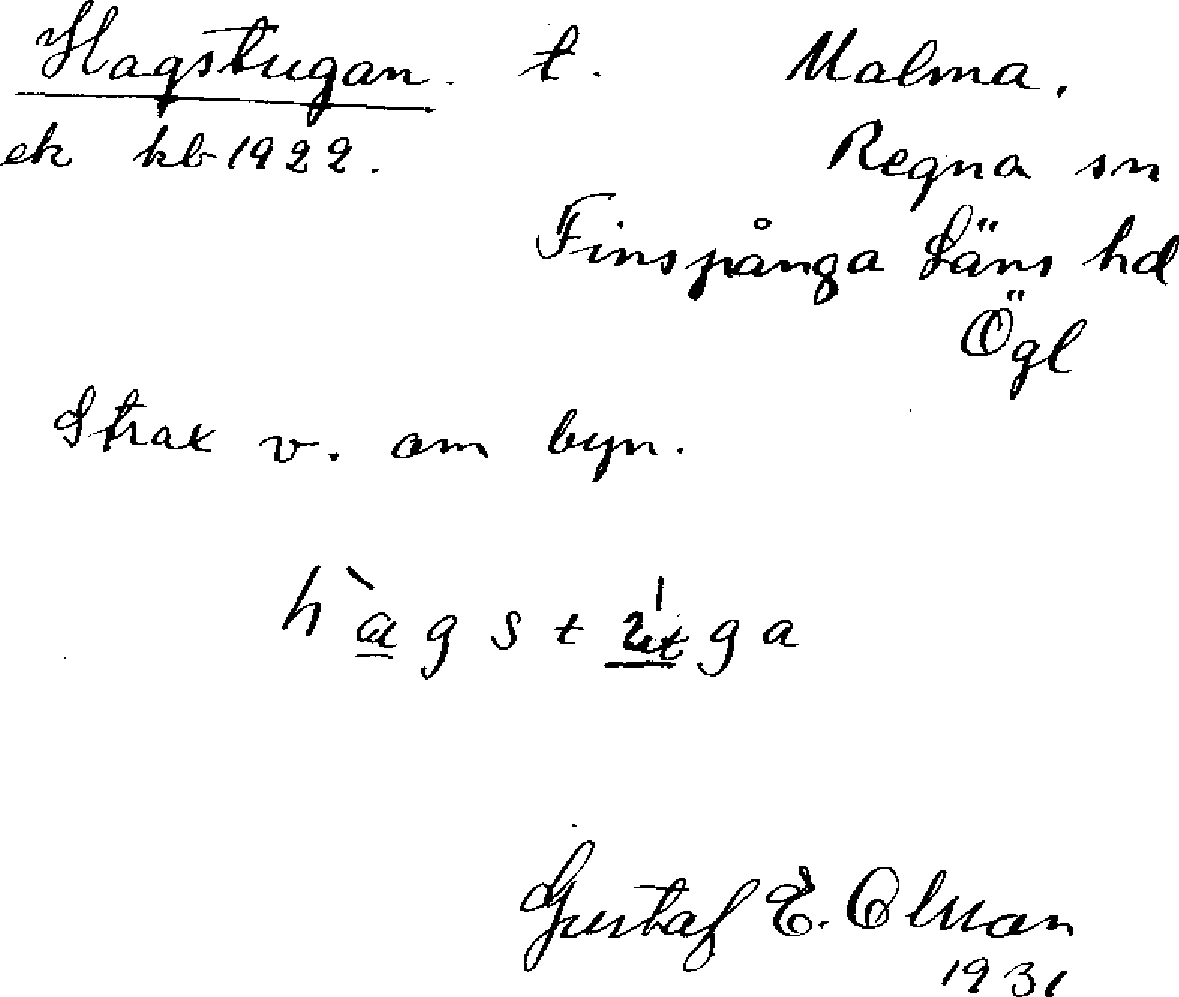 Hagstugan. t. Malma.
ek kb 1922. Regna sn
Finspånga Läns hd
Ögl
Strax v. om byn.
Gustaf E. Olsson
1931